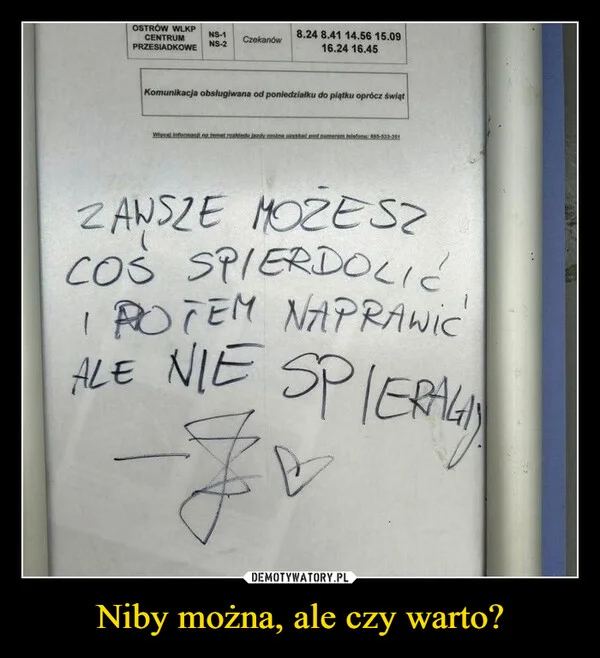 OSTRÓW WLKP CENTRUM PRZESIADKOWE NS-1 NS-2 Czekanów 8.24 8.41 14.56 15.09 16.24 16.45
Komunikacja obsługiwana od poniedziałku do piątku oprócz świąt
Więcej informacji na temat rozkładu jazdy można uzyskać pod numerem telefonu:
ZAWSZE MOŻESZ
COŚ SPIERDOLIĆ
I POTEM NAPRAWIĆ
ALE NIE
DEMOTYWATORY.PL
Niby można, ale czy warto?